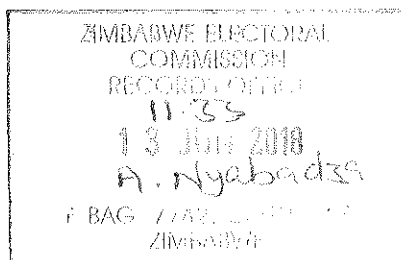 ZIMBABWE ELECTORAL
COMMISSION
RECORDS OFFICE
13 2018
A. Nyabadza
P BAG
ZIMBABWE